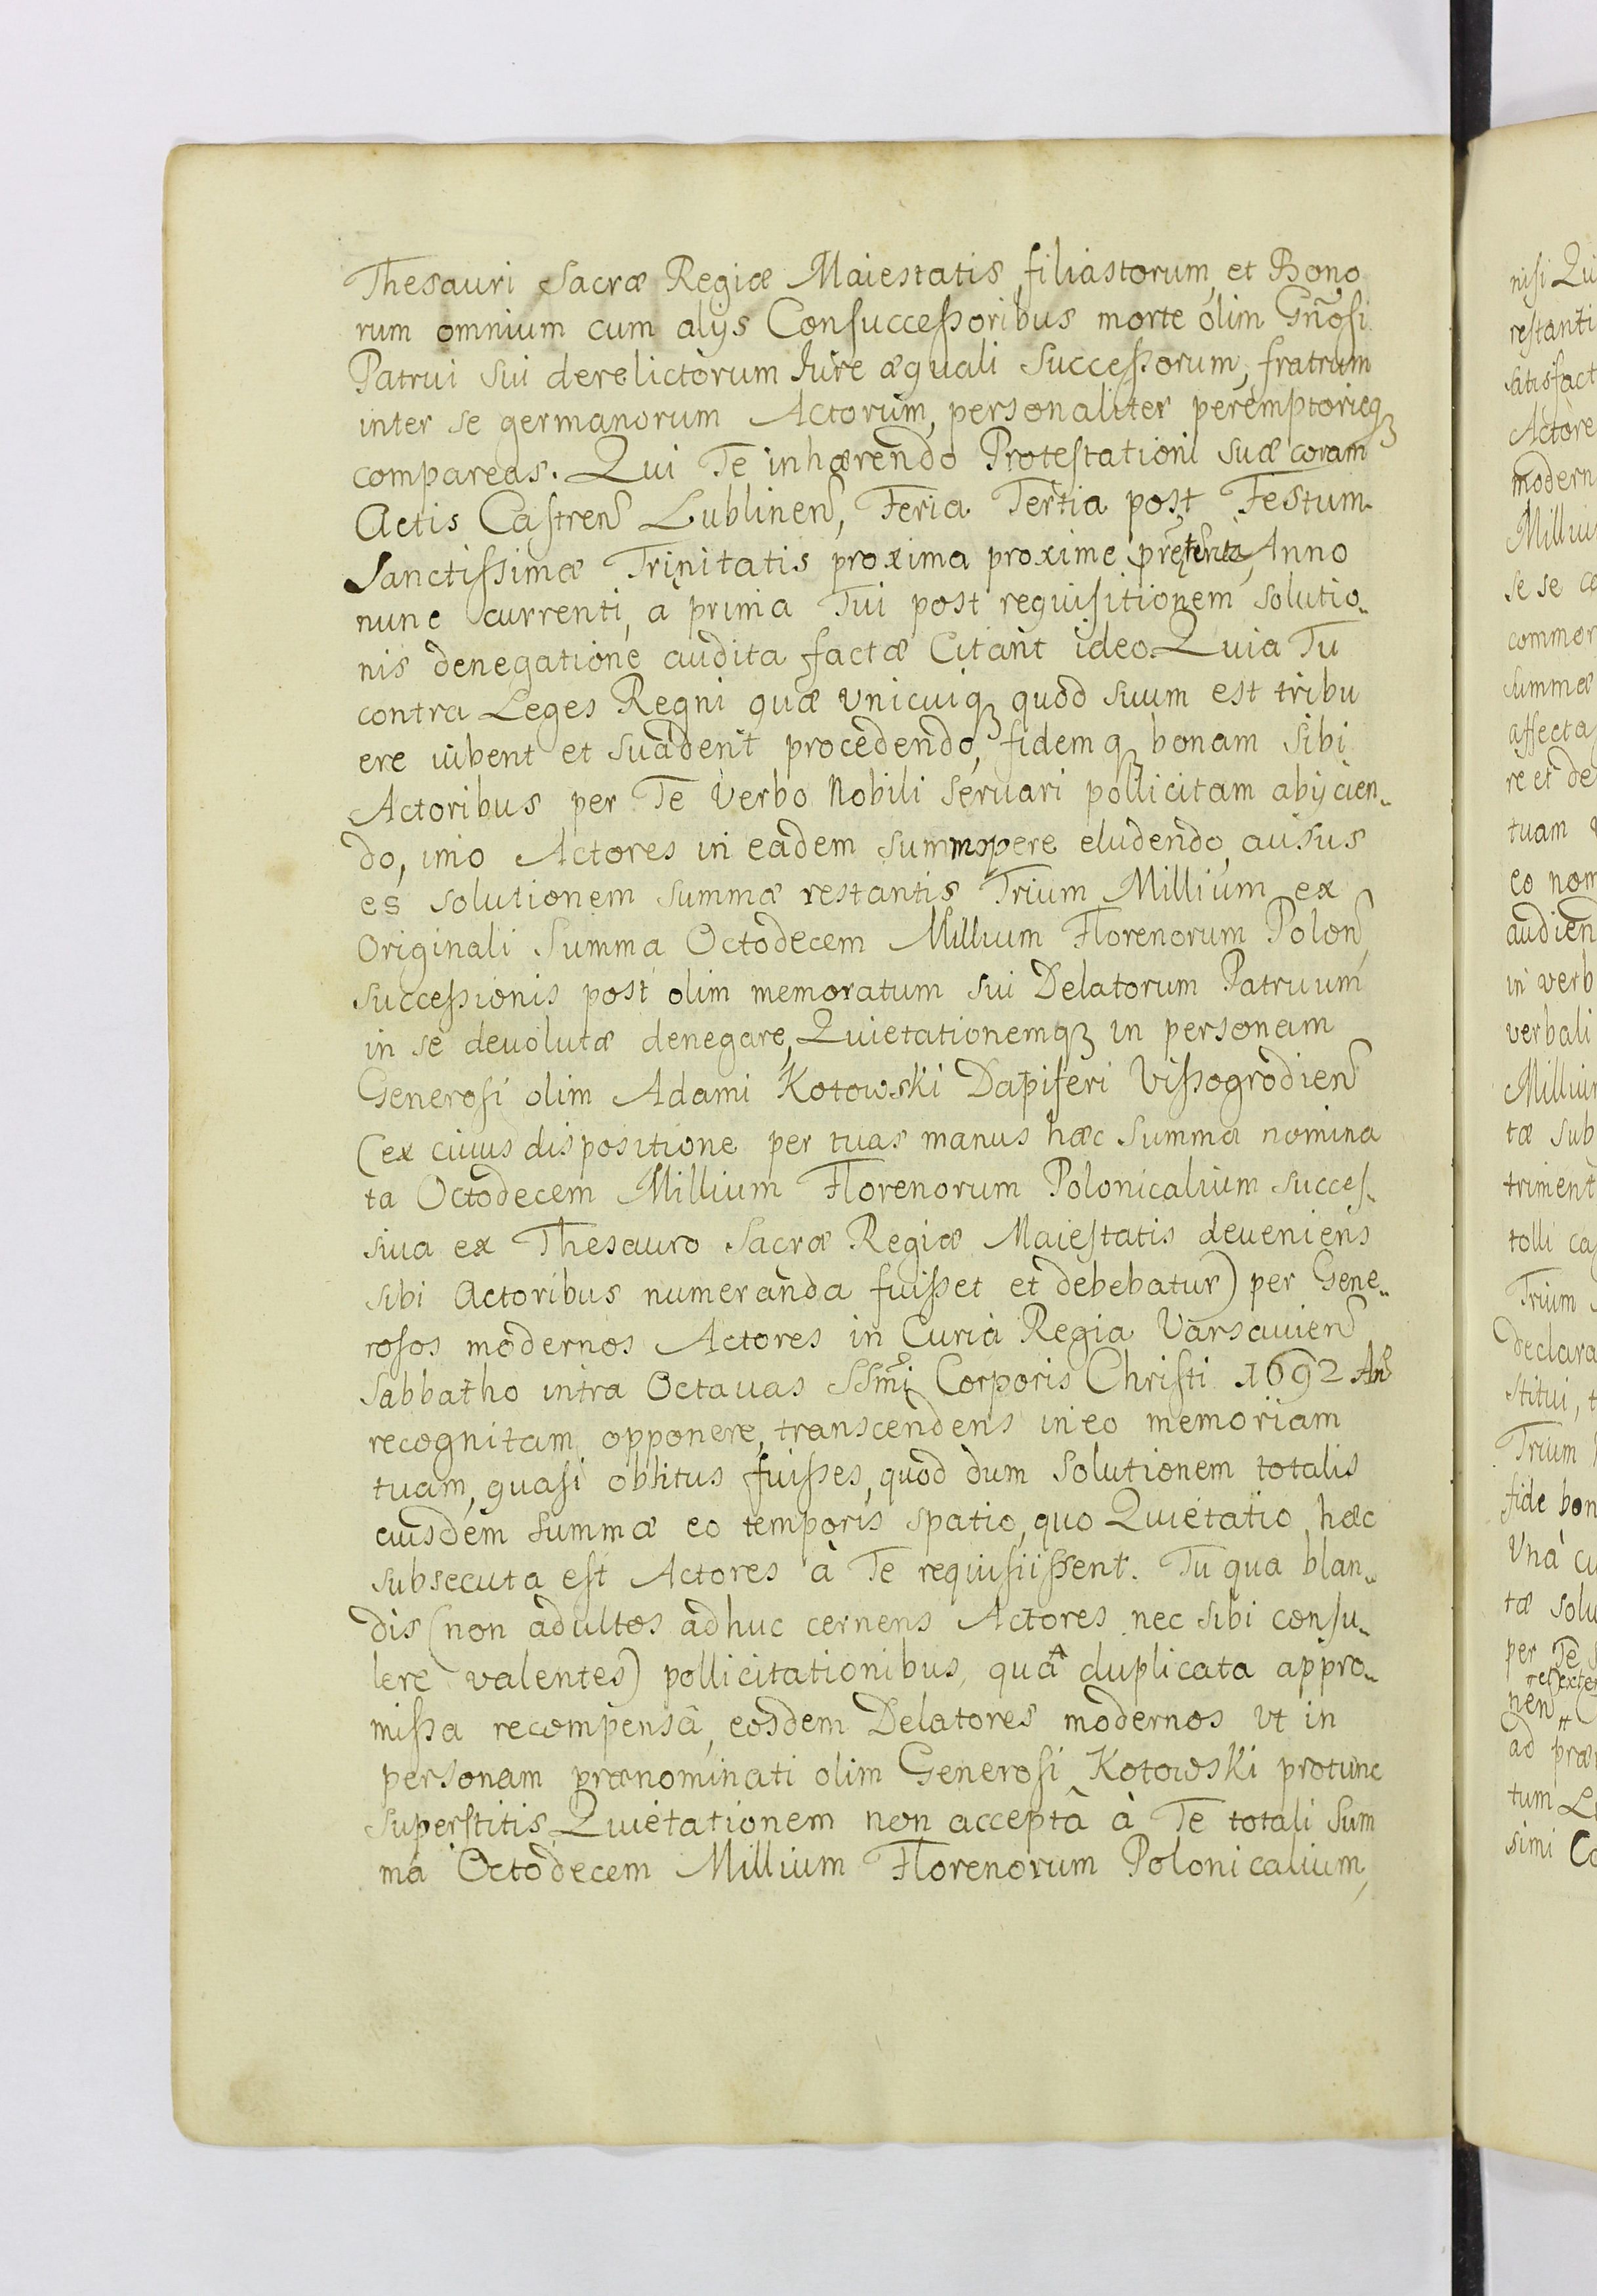 Thesauri Sacræ Regiæ Maiestatis, filiastorum, et Bono
rum omnium cum alijs Consuccessoribus morte olim Gn̄osi
Patrui sui derelictorum Jure æquali Successorum, fratrum
inter se germanorum Actorum, personaliter peremptorieqꝫ
compareas. Qui Te inhærendo Protestationi suæ coram
Actis Castren̄ Lublinen̄, Feria Tertia post Festum
Sanctissimæ Trinitatis proxima proxime præterita, Anno
nunc currenti, à prima Tui post requisitionem solutio-
nis denegatione audita factæ Citant ideo. Quia Tu
contra Leges Regni quæ vnicuiqꝫ quod suum est tribu
ere iubent et suadent procedendo, fidemqꝫ bonam sibi
Actoribus per Te Verbo Nobili Seruari pollicitam abijcien-
do, imo Actores in eadem summopere eludendo, ausus
es solutionem summæ restantis Trium Millium ex
Originali Summa Octodecem Millium Florenorum Polon̄
successionis post olim memoratum sui Delatorum Patruum
in se deuolutæ denegare, Quietationemqꝫ in personam
Generosi olim Adami Kotowski Dapiferi Vissogrodien̄
(ex cuius dispositione per tuas manus hæc summa nomina
ta Octodecem Millium Florenorum Polonicalium succes-
siua ex Thesauro Sacræ Regiæ Maiestatis deueniens
sibi Actoribus numeranda fuisset et debebatur) per Gene-
rosos modernos Actores in Curia Regia Varsauien̄
Sabbatho intra Octauas SSmi Corporis Christi 1692 Ano
recognitam opponere, transcendens in eo memoriam
tuam, quasi oblitus fuisses, quod dum solutionem totalis
eiusdem summæ eo temporis spatio, quo Quietatio hæc
subsecuta est Actores à Te requisiissent. Tu qua blan-
dis (non adultos adhuc cernens Actores nec sibi consu-
lere valentes) pollicitationibus, quâ duplicata appro-
missa recompensâ, eosdem Delatores modernos vt in
personam prænominati olim Generosi Kotowski protunc
superstitis Quietationem non acceptâ à Te totali Sum
ma Octodecem Millium Florenorum Polonicalium,
nisi Qui
restanti
satisfact
Actore
modern
Milliu
se se co
commor
summæ
affecta
re et de
tuam
eo nom
audien
in verb
verbali
Milliu
tæ sub
triment
tolli ca
Trium
declara
stitui,
Trium
fide bon
Vnà cu
tæ solu
per Te
nen
ad præ
tum
simi Co